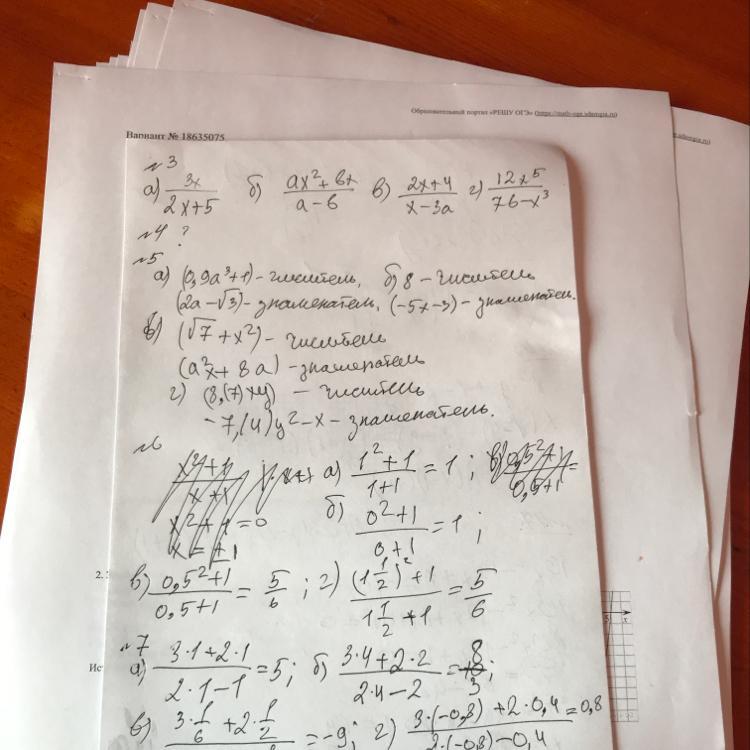 Образовательный портал «РЕШУ ОГЭ» (https://math-oge.sdamgia.ru)
Вариант № 18635075
№3
а) 3x/(2x+5) б) (ax²+bx)/(a-b) в) (2x+4)/(x-3a) г) 12x⁵/(7b-x³)
№4 ?
№5
а) (0,9a³+1) - числитель, б) 8 - числитель
(2a-√3) - знаменатель, (-5x-3) - знаменатель.
в) (√7+x²) - числитель
(a²x+8a) - знаменатель
г) (8,(7)xy) - числитель
-7,(4)y²-x - знаменатель.
№6
а) (1²+1)/(1+1) = 1;
б) (0²+1)/(0+1) = 1;
в) (0,5²+1)/(0,5+1) = 5/6; г) ((1 1/2)²+1)/(1 1/2+1) = 5/6
№7
а) (3·1+2·1)/(2·1-1) = 5; б) (3·4+2·2)/(2·4-2) = 8/3;
в) 3·1/6+2·1/2 = -9; г) (3·(-0,8)+2·0,4)/(2·(-0,8)-0,4) = 0,8
2.